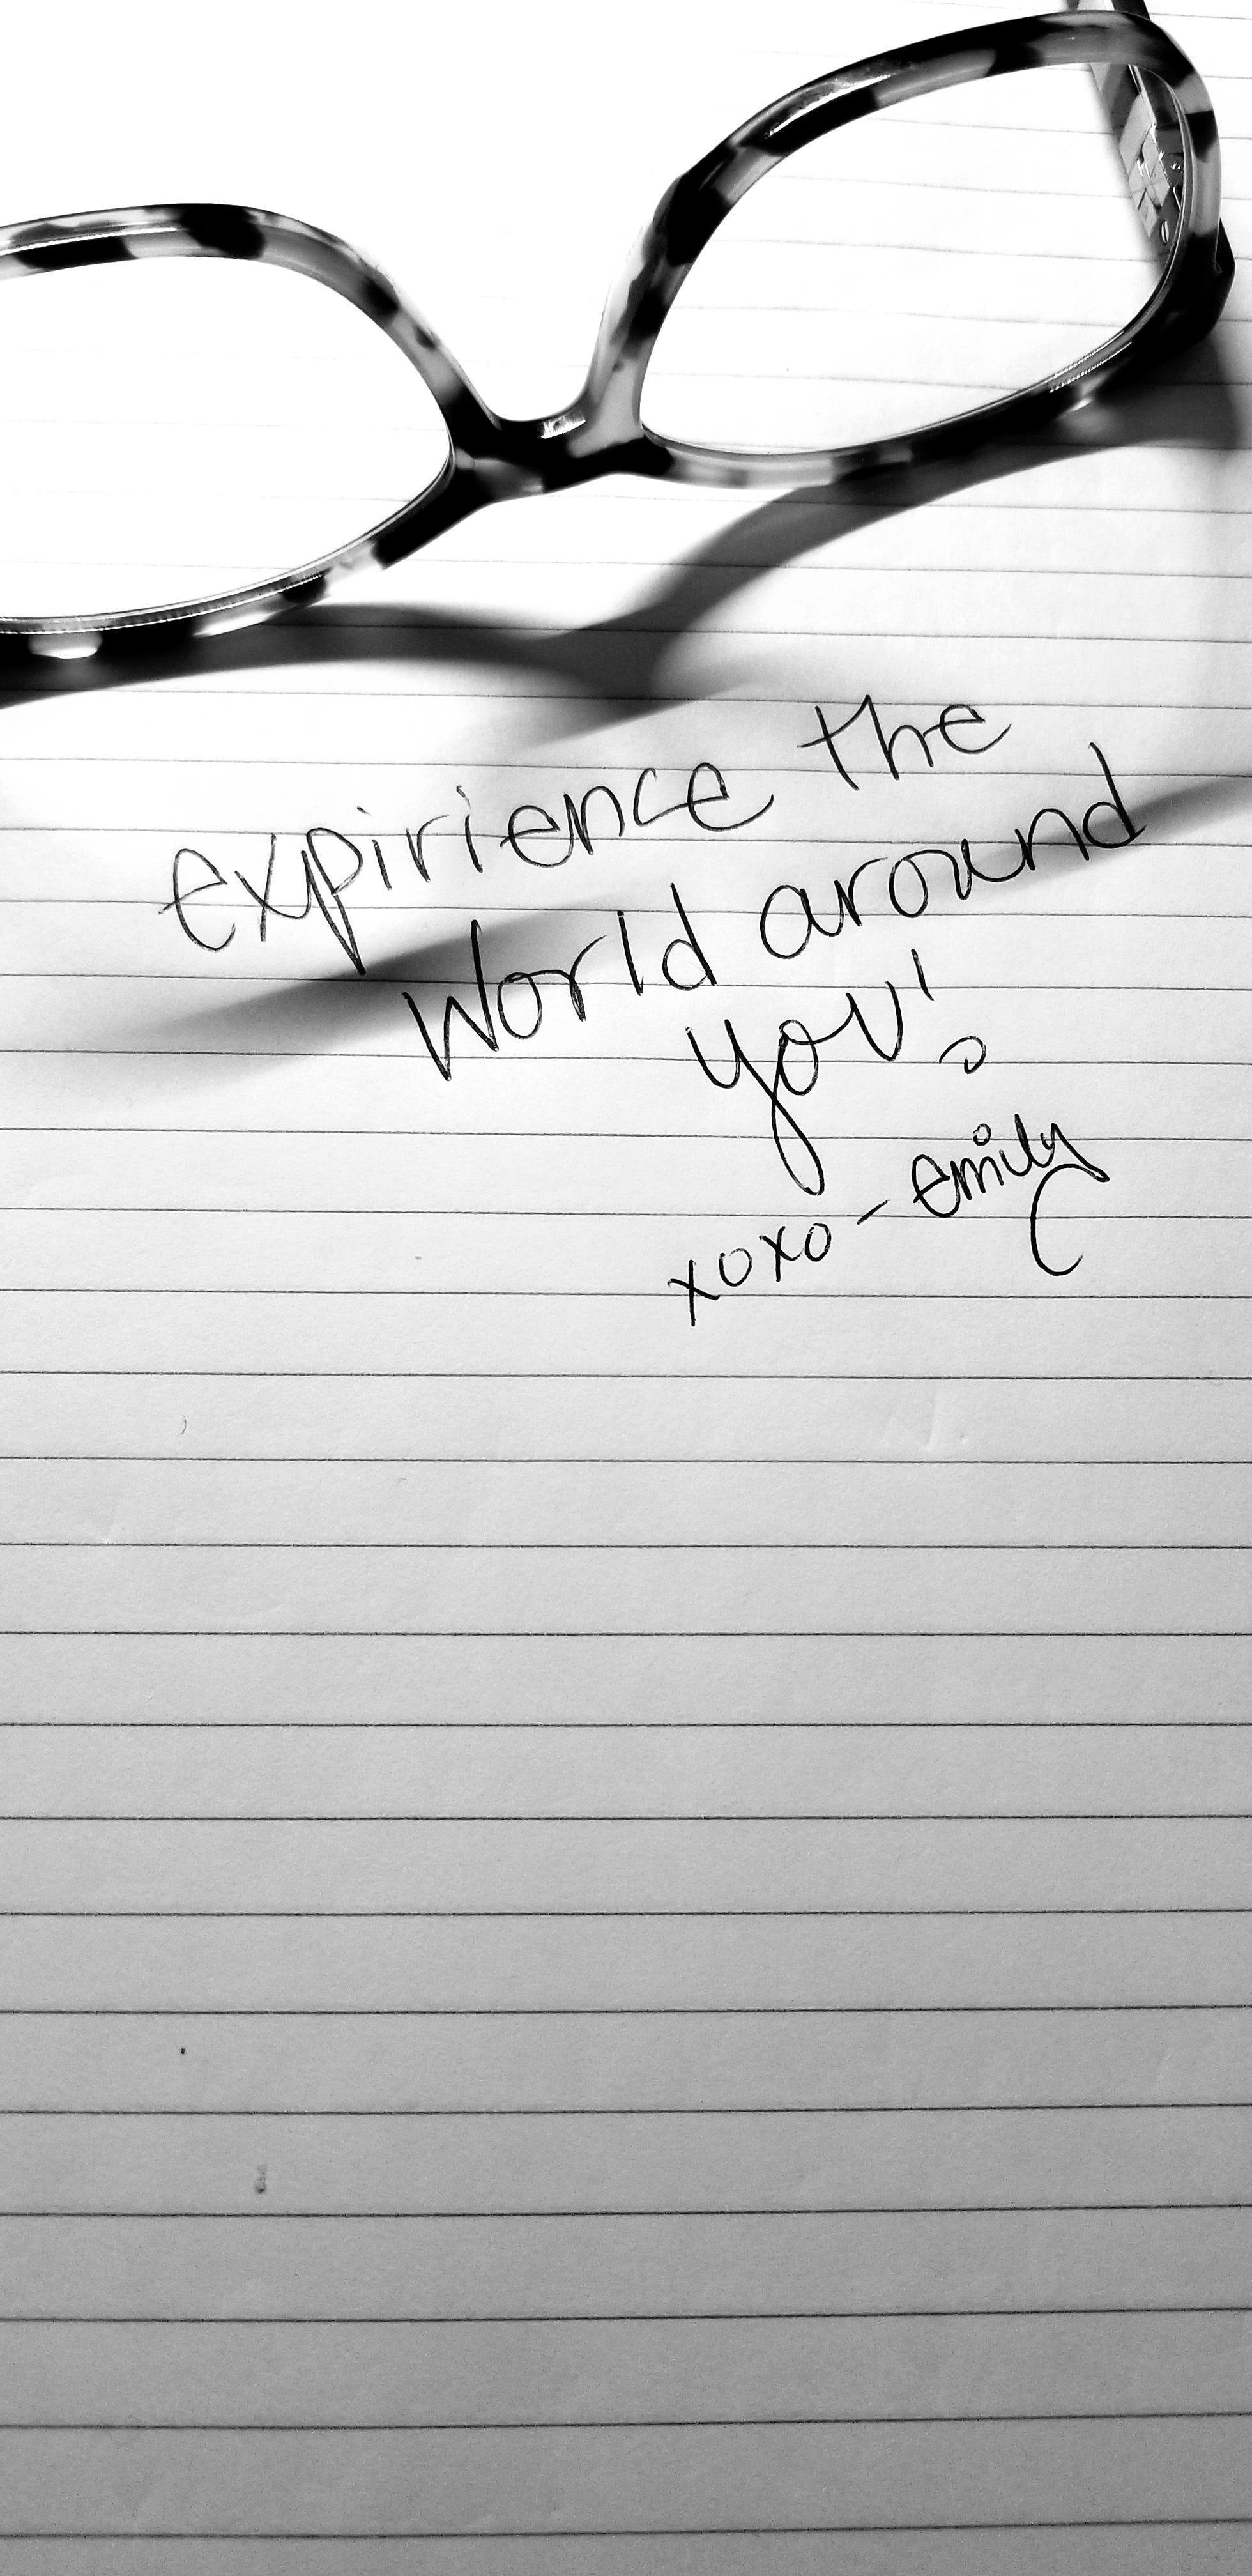 expirience the
world around
you!
xoxo - emily